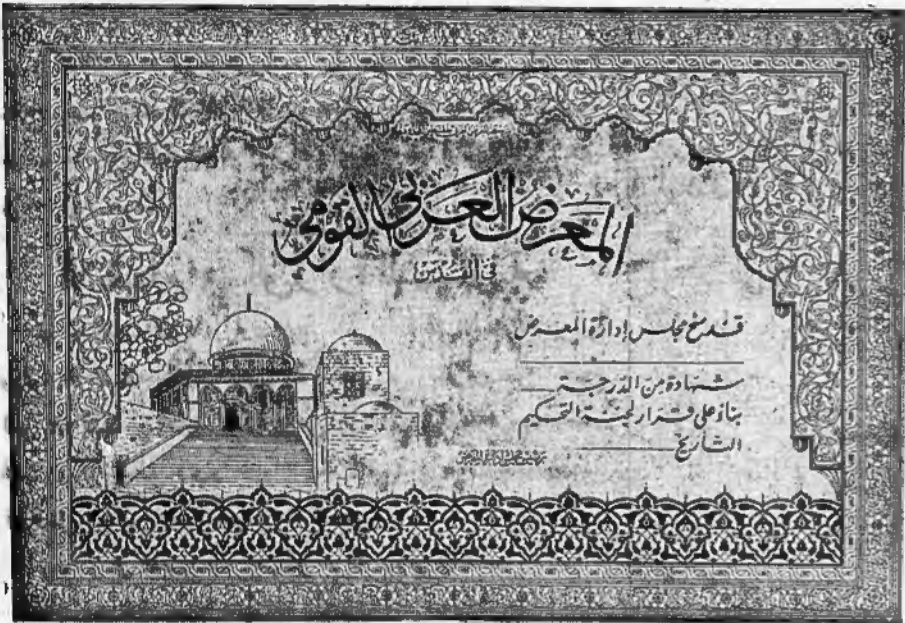 المعرض العربي القومي
في القدس
قد منح مجلس إدارة المعرض
شهادة من الدرجة
بناءً على قرار لجنة التحكيم
التأريخ